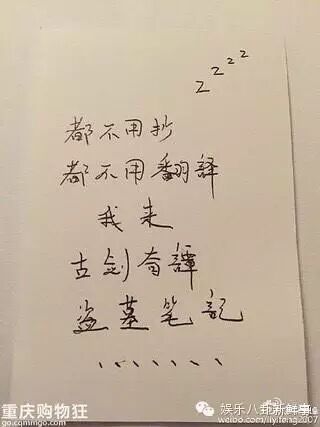 z z z z
都不用抄
都不用翻譯
我来
古劍奇譚
盗墓笔記
、、、、、、、
重庆购物狂
go.cqmmgo.com
娱乐八卦新鲜事